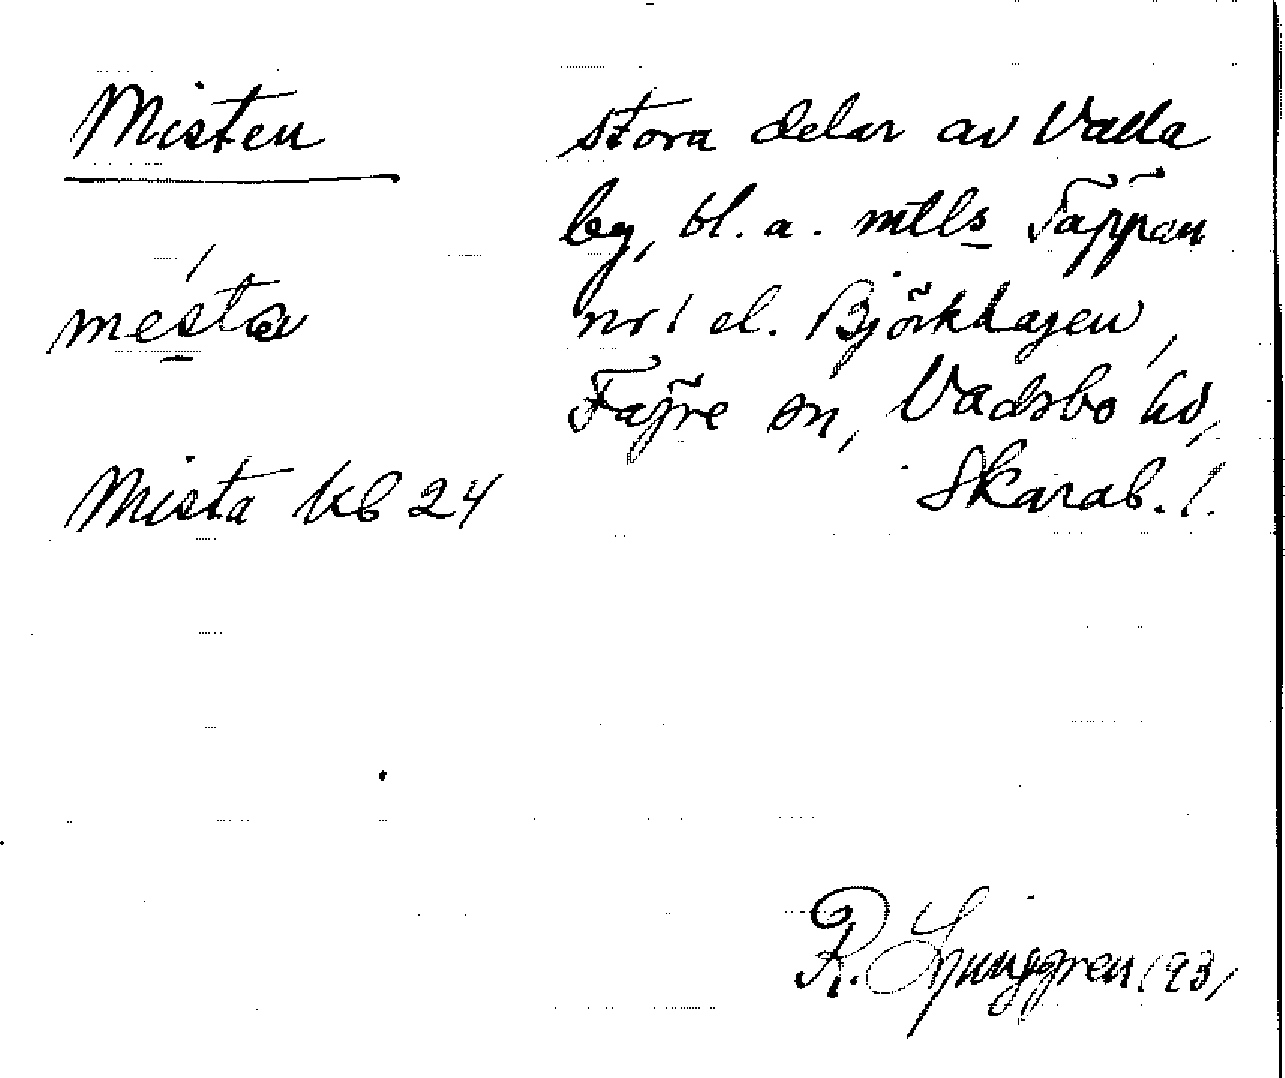 Misten
mesta
Mista kb 24
stora delar av Valla
beg, bl. a. mtls Täppan
nr 1 el. Björkhagen,
Fägre sn, Vadsbo hd,
Skarab. l.
R. Ljunggren 1931